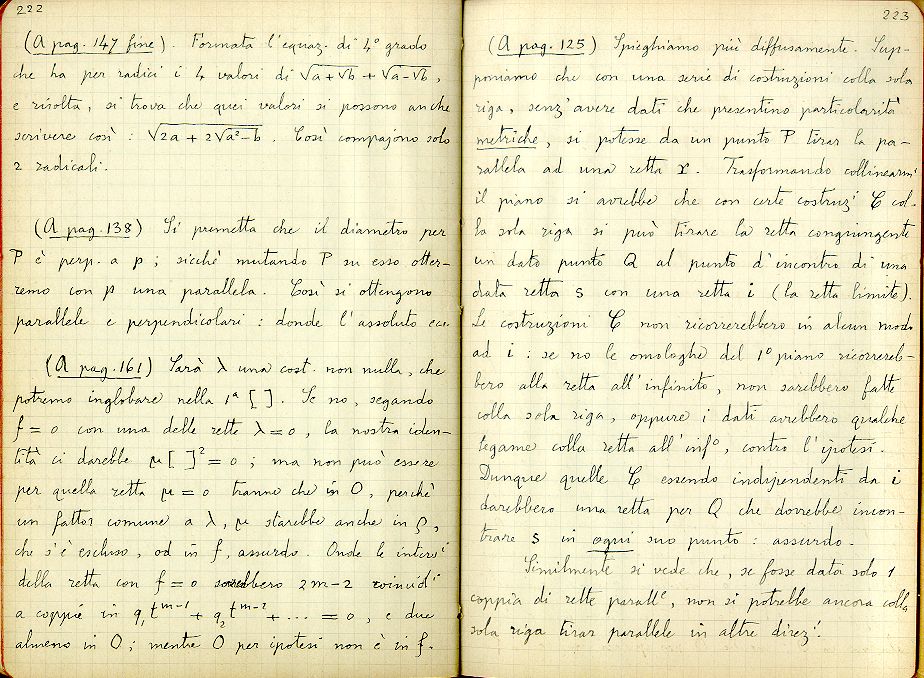 222
(A pag. 147 fine). Formata l'equaz. di 4° grado
che ha per radici i 4 valori di √a+√b + √a-√b,
e risolta, si trova che quei valori si possono anche
scrivere così: √2a + 2√a²-b. Così compajono solo
2 radicali.
(A pag. 138) Si premetta che il diametro per
P è perp. a p; sicchè mutando P su esso otter-
remo con p una parallela. Così si ottengono
parallele e perpendicolari: donde l'assoluto ecc.
(A pag. 161) Sarà λ una cost. non nulla, che
potremo inglobare nella 1ª [ ]. Se no, segando
f=0 con una delle rette λ=0, la nostra iden-
tità ci darebbe μ[ ]²=0; ma non può essere
per quella retta μ=0 tranne che in O, perchè
un fattor comune a λ, μ starebbe anche in ρ,
che s'è escluso, od in f, assurdo. Onde le intersⁱ
della retta con f=0 sarebbero 2m-2 coincidⁱ
a coppie in q₁t^{m-1} + q₂t^{m-2} + ... = 0, e due
almeno in O; mentre O per ipotesi non è in f.
223
(A pag. 125) Spieghiamo più diffusamente. Sup-
poniamo che con una serie di costruzioni colla sola
riga, senz'avere dati che presentino particolarità
metriche, si potesse da un punto P tirar la pa-
rallela ad una retta r. Trasformando collinearmᵉ
il piano si avrebbe che con certe costruzⁱ C col-
la sola riga si può tirare la retta congiungente
un dato punto Q al punto d'incontro di una
data retta s con una retta i (la retta limite).
Le costruzioni C non ricorrerebbero in alcun modo
ad i: se no le omologhe del 1° piano ricorrereb-
bero alla retta all'infinito, non sarebbero fatte
colla sola riga, oppure i dati avrebbero qualche
legame colla retta all'inf°, contro l'ipotesi.
Dunque quelle C essendo indipendenti da i
darebbero una retta per Q che dovrebbe incon-
trare s in ogni suo punto: assurdo.
Similmente si vede che, se fosse data solo 1
coppia di rette parallᵉ, non si potrebbe ancora colla
sola riga tirar parallele in altre direzⁱ.